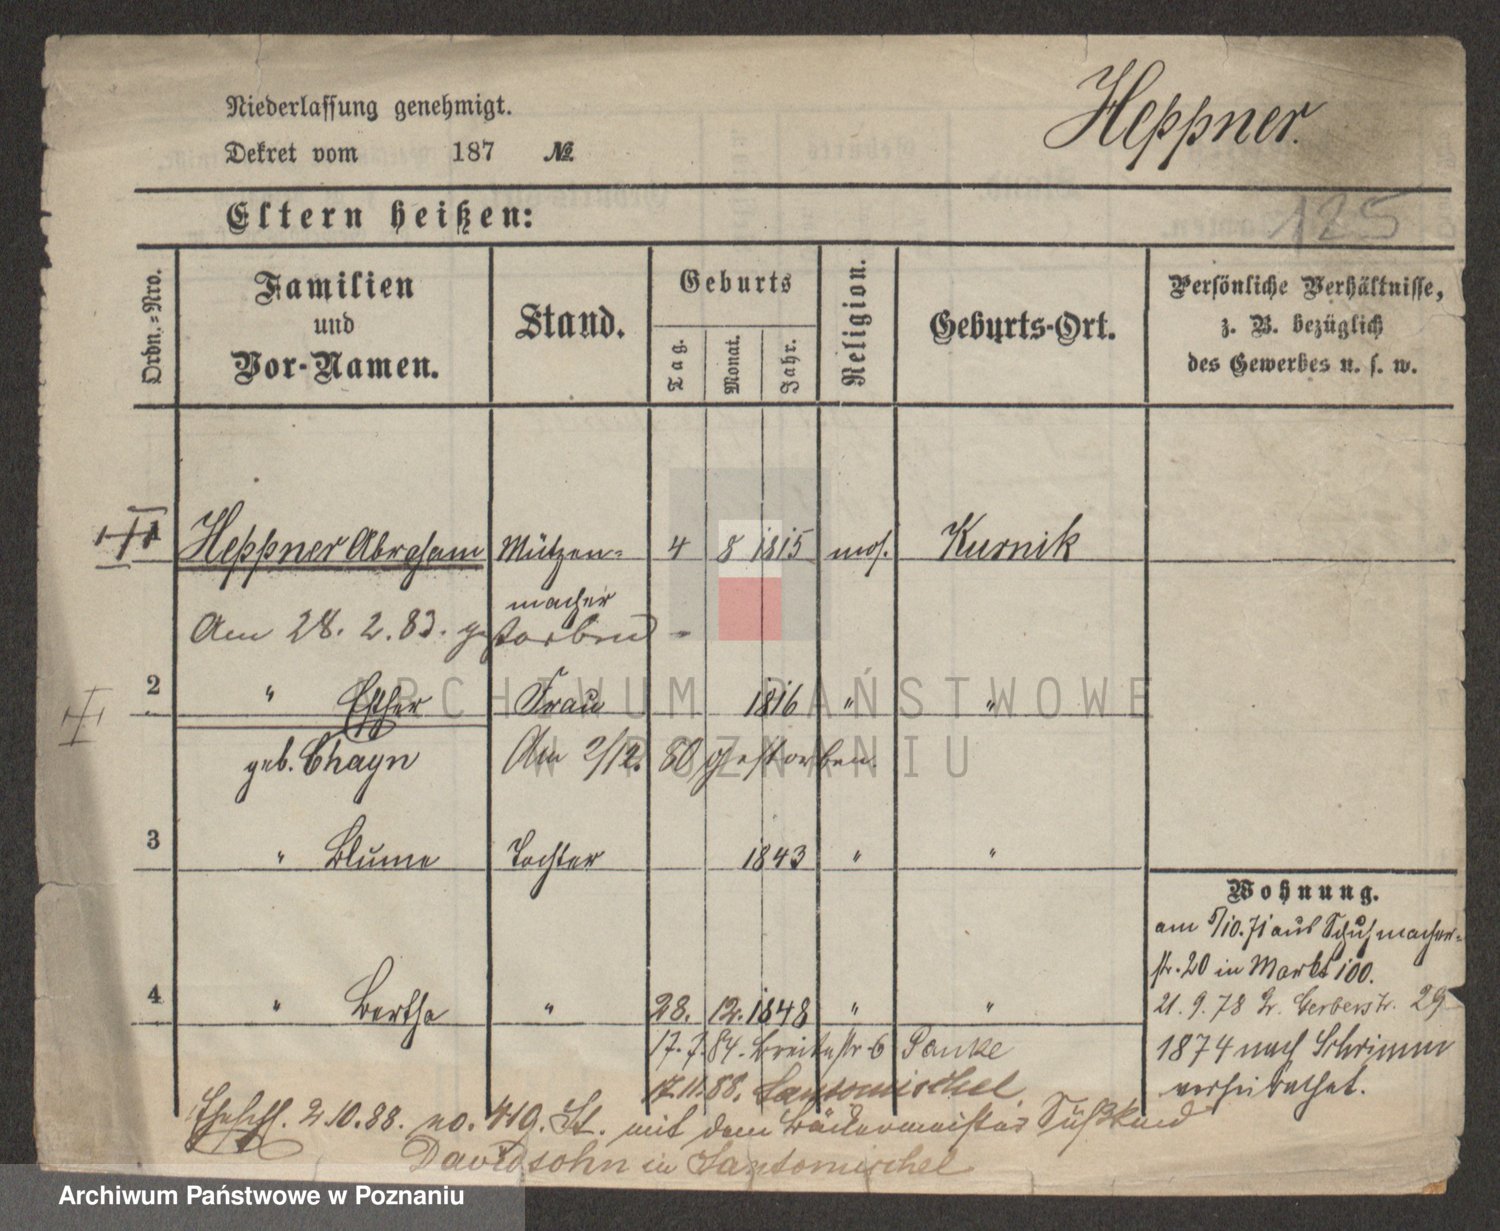 Niederlassung genehmigt.
Dekret vom 187 №
Heppner.
Eltern heißen:
125
Ordn.=Nro.
Familien
und
Vor-Namen.
Stand.
Geburts
Tag.
Monat.
Jahr.
Religion.
Geburts-Ort.
Persönliche Verhältnisse,
z. B. bezüglich
des Gewerbes u. s. w.
1 Heppner Abraham Mützen= 4 8 1815 mos. Kurnik
macher
Am 28. 2. 83. gestorben
2 " Esther Frau 1816 " "
geb. Chayn Am 2/12. 80 gestorben.
3 " Blume Tochter 1843 " "
4 " Bertha " 28. 12. 1848 " "
Wohnung.
am 5/10. 71 aus Schuhmacher=
str. 20 in Markt 100.
21. 9. 78 Gr. Gerberstr. 29
1874 nach Schrimm
verheirathet.
17. 7. 84. Breitestr 6 Panke
12. 11. 88. Santomischel
Eheschl. 2.10.88. no. 419. St. mit dem Bäckermeister Süßkind
Davidsohn in Santomischel
ARCHIWUM PAŃSTWOWE
W POZNANIU
Archiwum Państwowe w Poznaniu